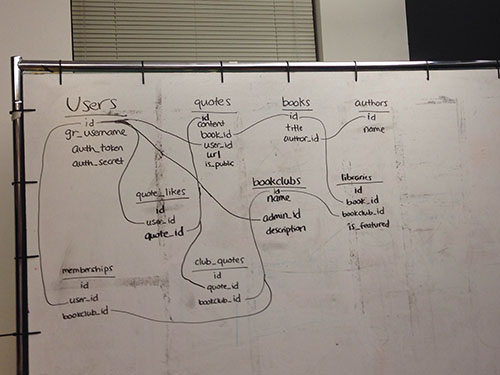 Users
id
gr_username
auth_token
auth_secret
quotes
id
content
book_id
user_id
url
is_public
books
id
title
author_id
authors
id
name
quote_likes
id
user_id
quote_id
bookclubs
id
name
admin_id
description
libraries
id
book_id
bookclub_id
is_featured
memberships
id
user_id
bookclub_id
club_quotes
id
quote_id
bookclub_id